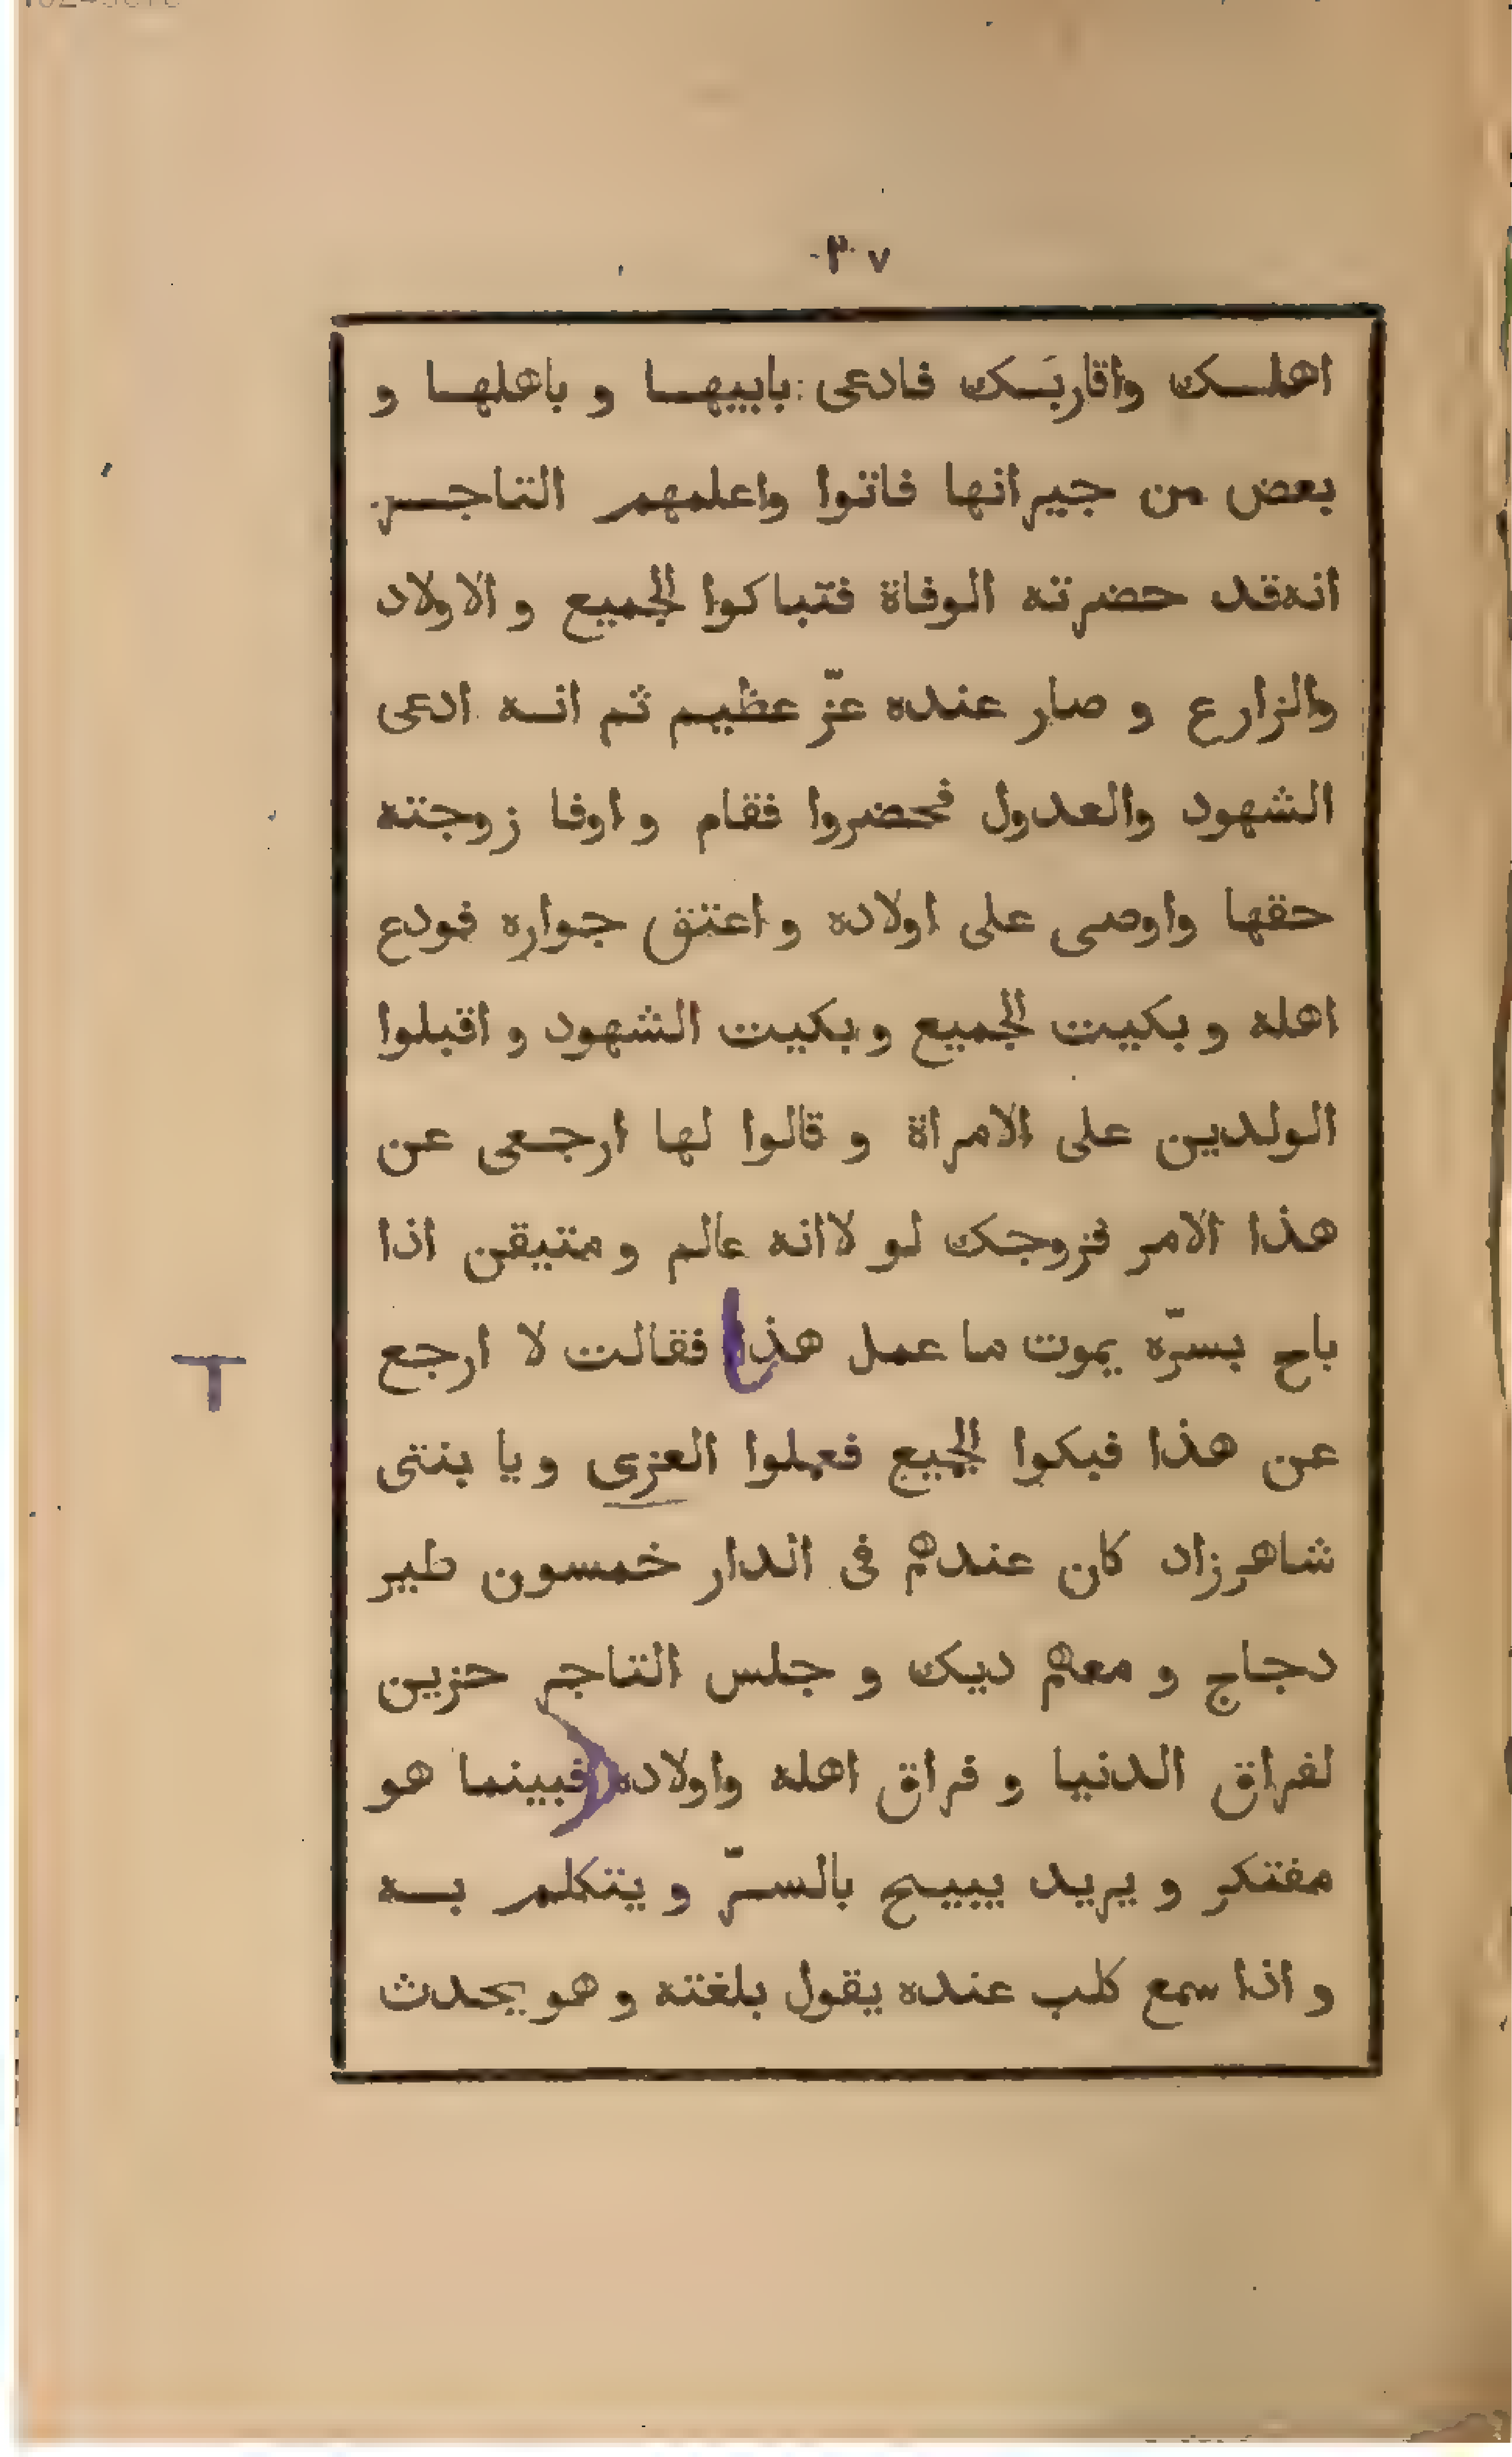 ٣٧
اهلك واقاربَك فادعى بابيها و باهلها و
بعض من جيرانها فاتوا واعلمهم التاجر
انه قد حضرته الوفاة فتباكوا الجميع و الاولاد
والزارع و صار عنده عزّ عظيم ثم انه ادعى
الشهود والعدول فحضروا فقام و اوفا زوجته
حقها واوصى على اولاده و اعتق جواره فودع
اهله و بكيت الجميع و بكيت الشهود و اقبلوا
الولدين على الامراة و قالوا لها ارجعى عن
هذا الامر فزوجك لو لا انه عالم و متيقن اذا
باح بسرّه يموت ما عمل هذا فقالت لا ارجع
عن هذا فبكوا الجيع فعملوا العزى و يا بنتى
شاهرزاد كان عندهم فى الدار خمسون طير
دجاج و معهم ديك و جلس التاجر حزين
لفراق الدنيا و فراق اهله واولاده فبينما هو
مفتكر و يريد يبيح بالسرّ و يتكلم به
و اذا سمع كلب عنده يقول بلغته و هو يحدث